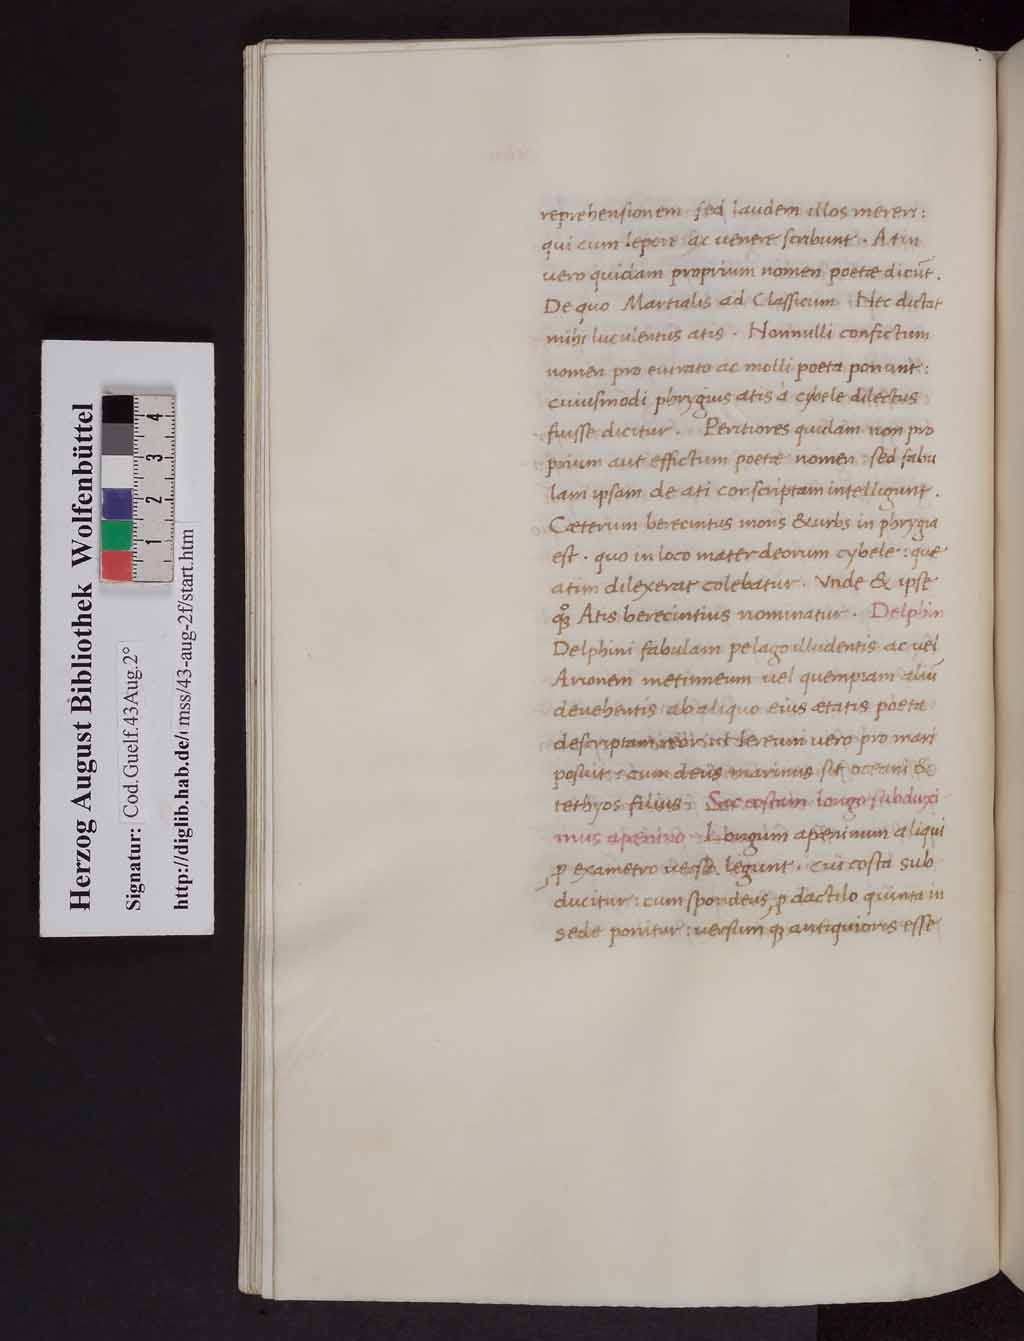 reprehensionem sed laudem illos mereri:
qui cum lepore ac uenere scribunt. Atin
uero quidam proprium nomen poetæ dicūt.
De quo Martialis ad Classicum Nec dictat
mihi luculentus atis. Nonnulli confictum
nomen pro euirato ac molli poeta ponunt:
cuiusmodi phrygius atis a cybele dilectus
fuisse dicitur. Peritiores quidam non pro
prium aut effictum poetæ nomen: sed fabu
lam ipsam de ati conscriptam intelligunt.
Cæterum berecintus mons & urbs in phrygia
est. quo in loco mater deorum cybele: que
atim dilexerat colebatur. Vnde & ipse
qȝ Atis berecintius nominatur. Delphin
Delphini fabulam pelago illudentis ac uel
Arionem metinneum uel quempiam aliū
deuehentis ab aliquo eius ætatis poeta
descriptam reor ut Nereum uero pro mari
posuit: cum deus marinus sit oceani &
tethyos filius: Sic costam longo subduxi
mus apenino Longum apeninum aliqui
p exametro uersu legunt. cui costa sub
ducitur: cum spondeus p dactilo quinta in
sede ponitur: uersum qȝ antiquioris esse
Herzog August Bibliothek Wolfenbüttel
Signatur: Cod.Guelf.43Aug.2°
http://diglib.hab.de/mss/43-aug-2f/start.htm
1 2 3 4